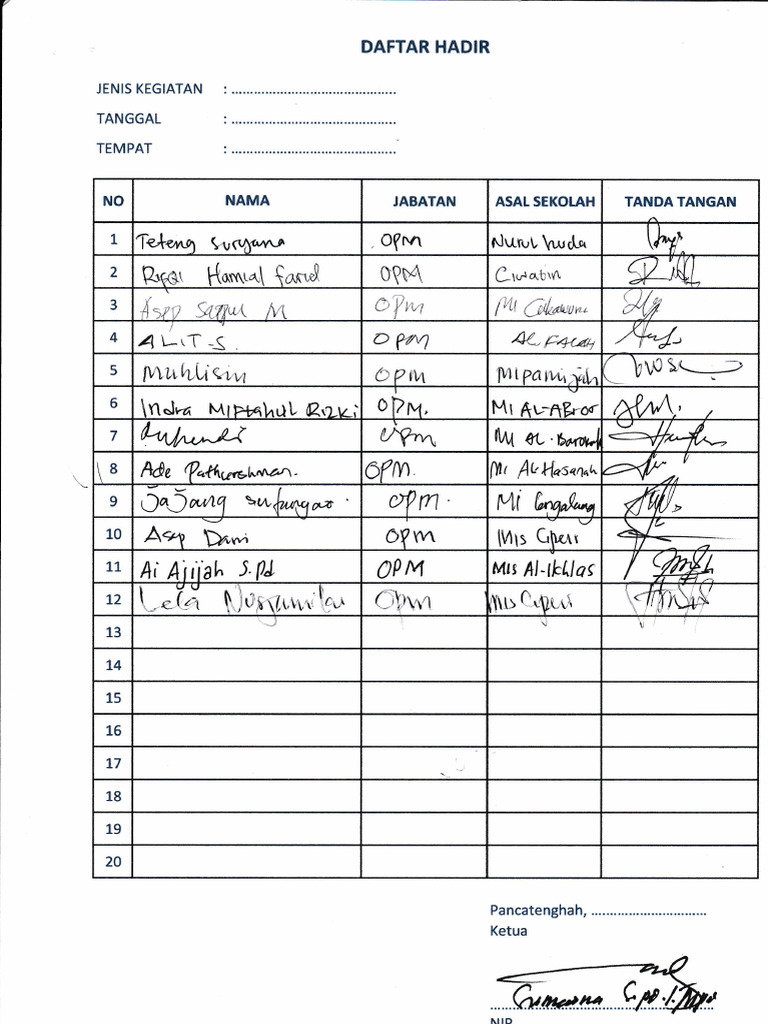 DAFTAR HADIR
JENIS KEGIATAN : ............................................
TANGGAL : ............................................
TEMPAT : ............................................
NO NAMA JABATAN ASAL SEKOLAH TANDA TANGAN
1 Teteng Suryana OPM Nurul huda
2 Rifqi Hamial farid OPM Ciwatin
3 Asep M OPM MI
4 ALIT-S. OPM AL FALAH
5 Muhlisin OPM MI Pamijah
6 Indra MIFtahul RIZKI OPM. MI AL-Abror
7 Ruhendi OPM MI AL-Barokah
8 Ade OPM. MI Al-Hasanah
9 Jajang OPM. MI
10 Asep Dani OPM MIS Ciperi
11 Ai Ajijah S.Pd OPM MIS Al-Ikhlas
12 Lela Nurjamilai OPM MIS Ciperi
13
14
15
16
17
18
19
20
Pancatenghah, ...............................
Ketua
NIP